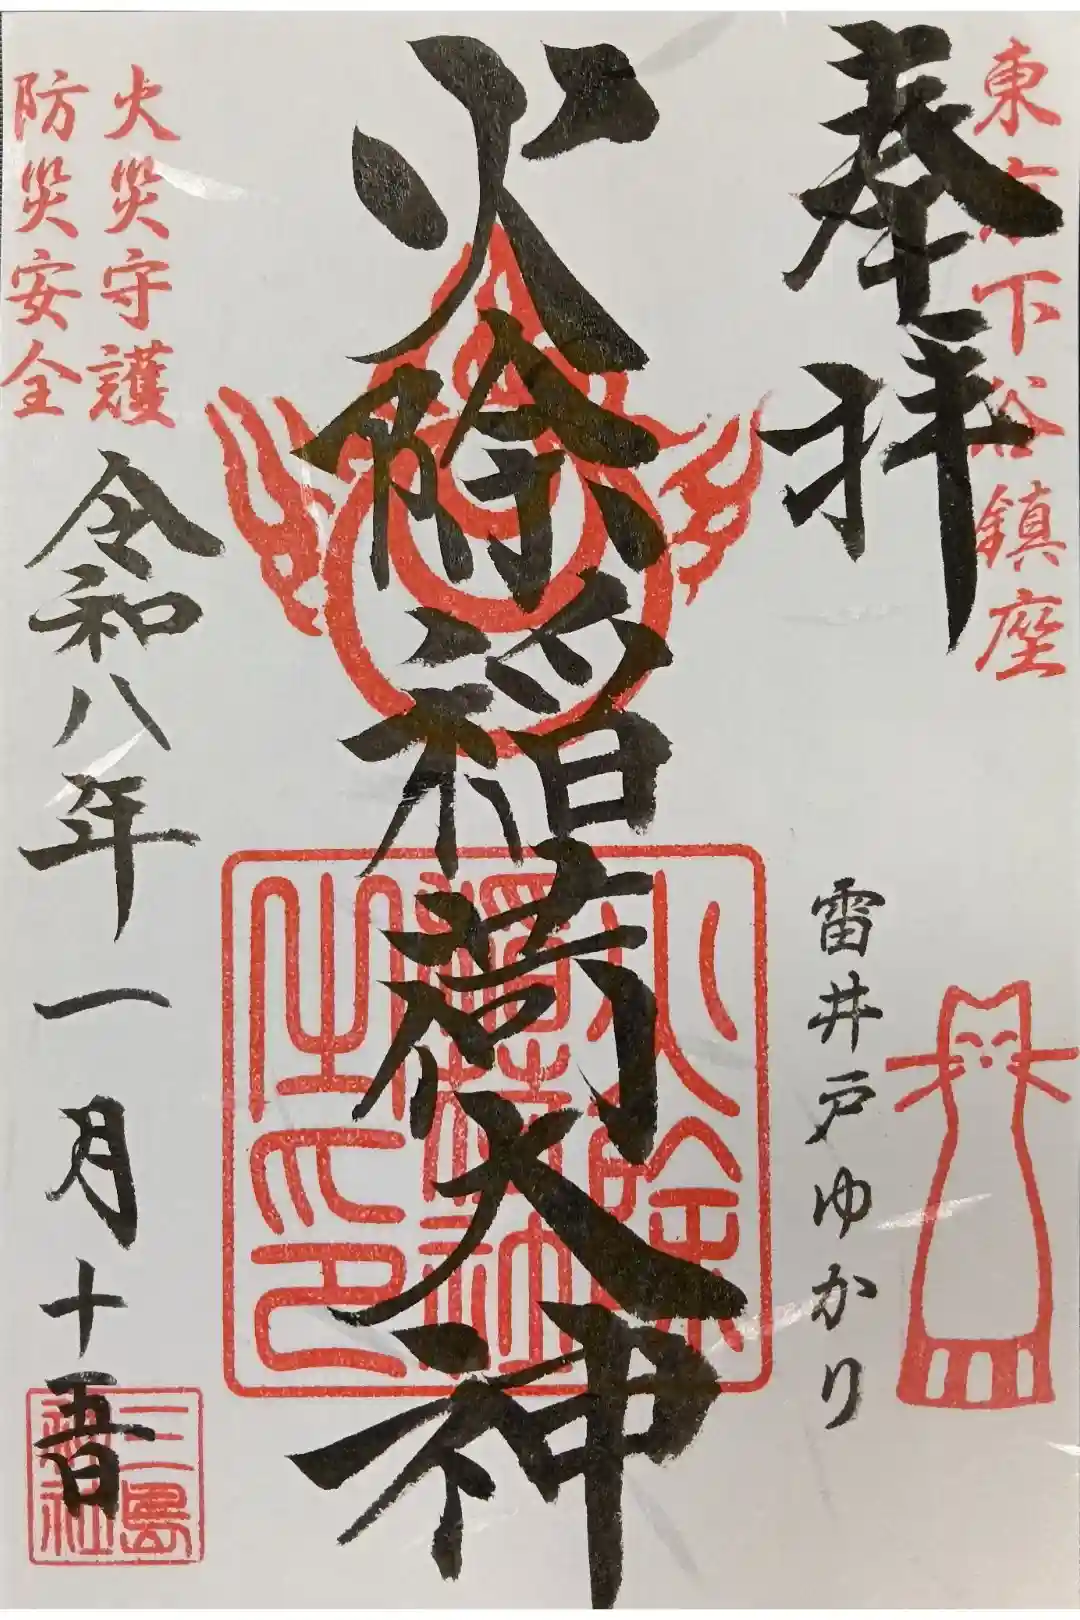 東京下谷鎮座
奉拝
雷井戸ゆかり
火除稲荷大神
火除
稲荷社
之印
火災守護
防災安全
令和八年一月十五日
三島
神社